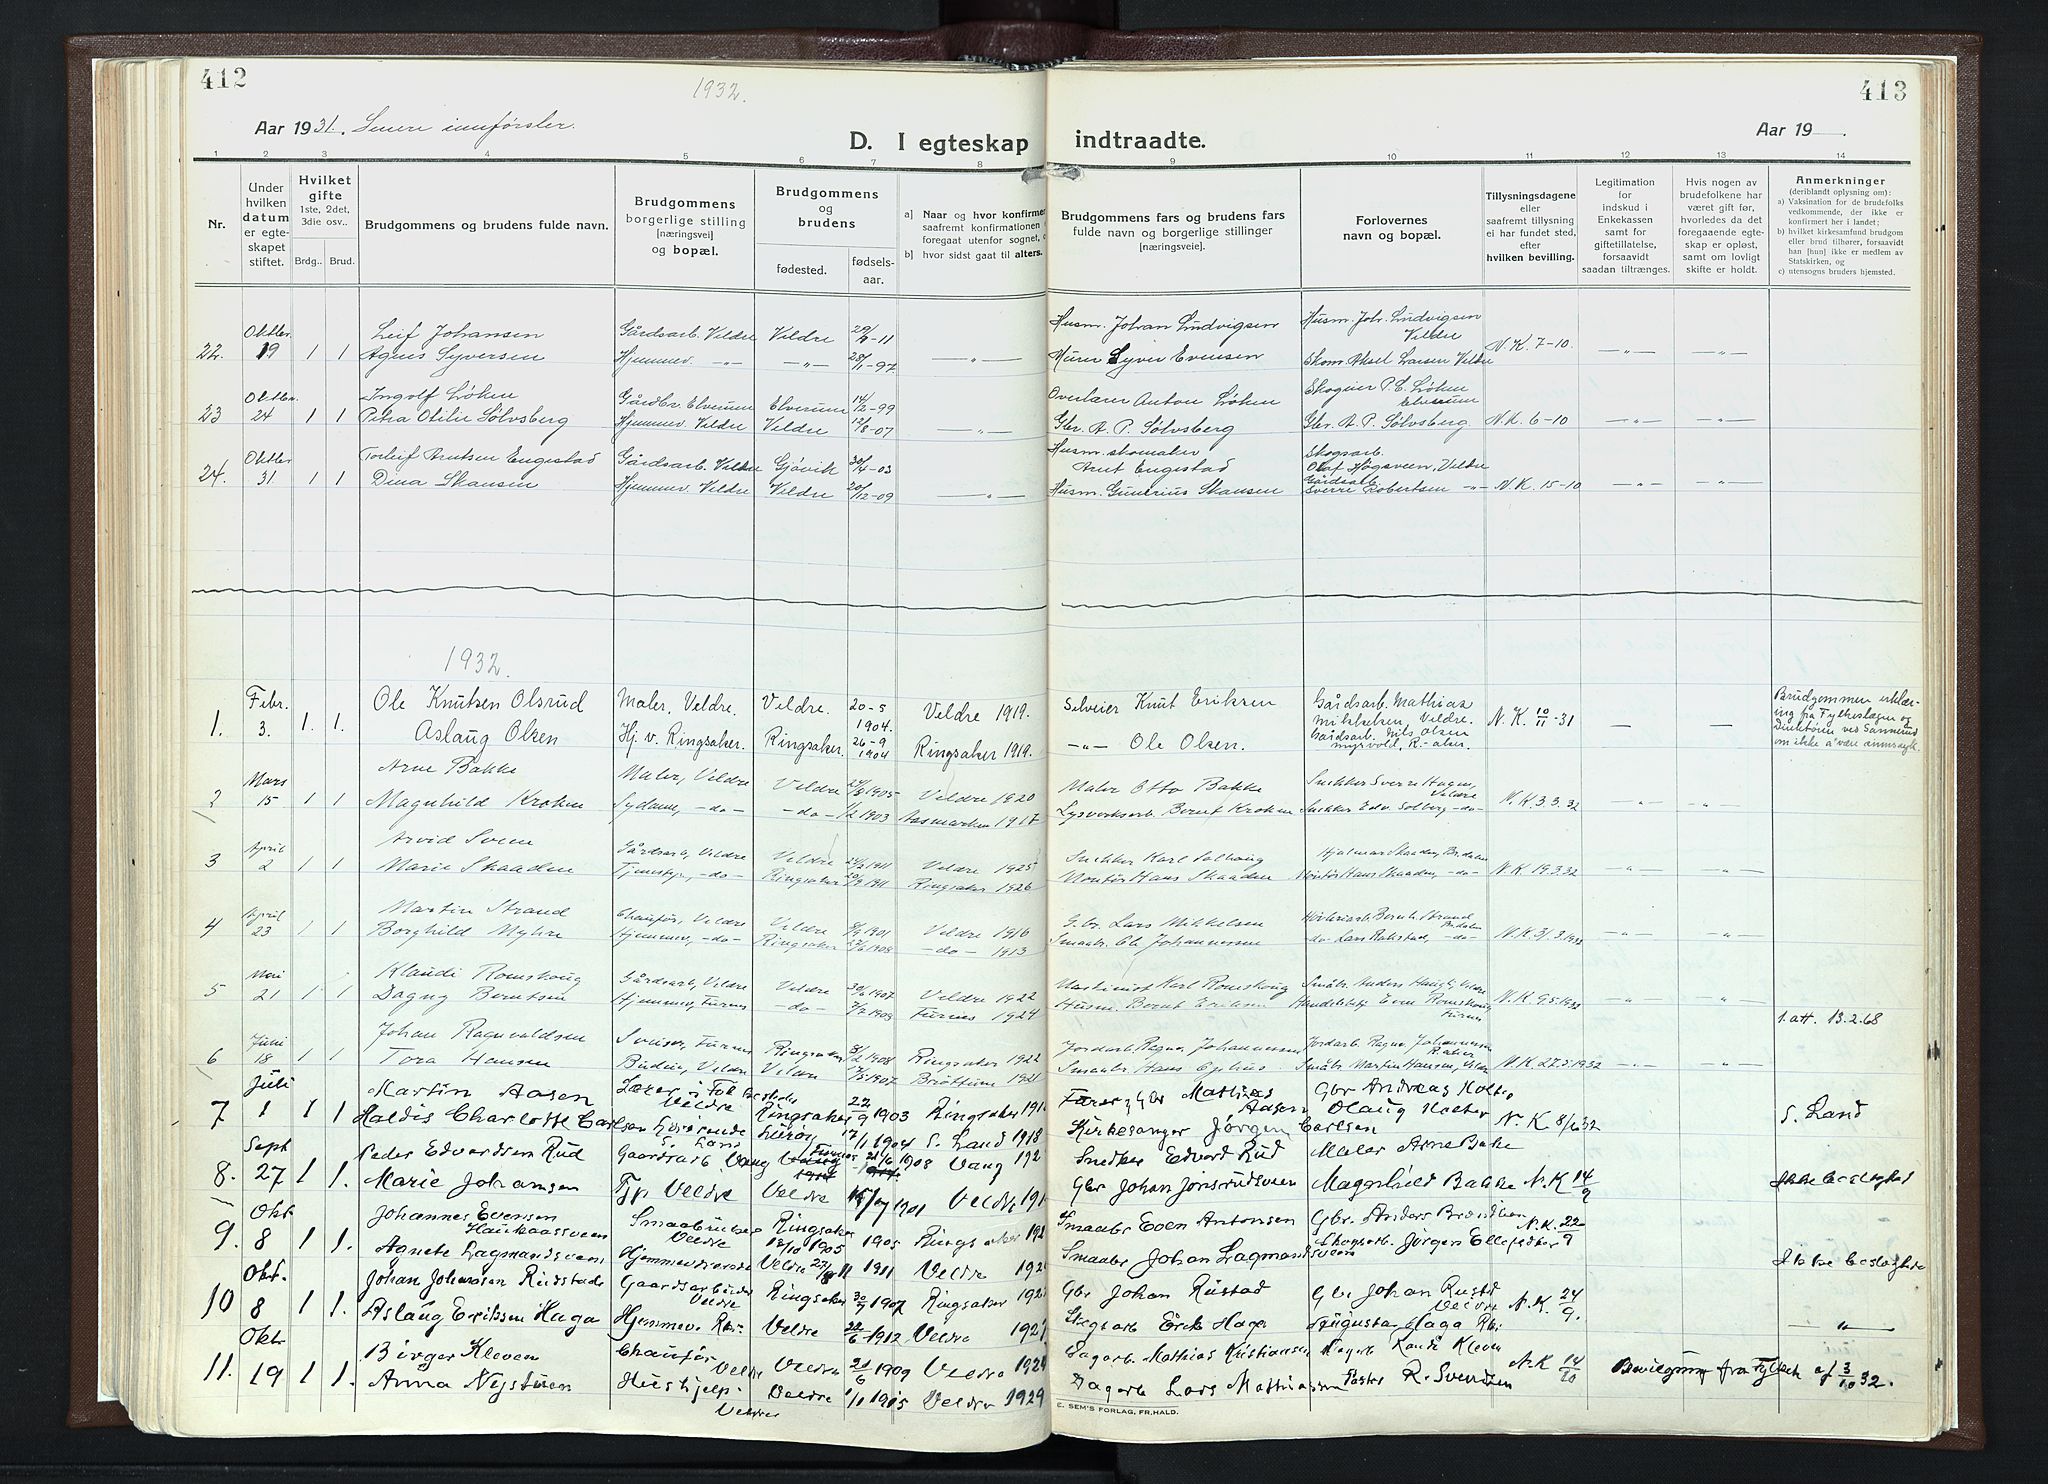 412
413
1932.
Aar 1931. Senere innførsler.
Aar 19 .
D. I egteskap indtraadte.
1 2 3 4 5 6 7 8 9 10 11 12 13 14
Nr.
Under hvilken datum er egteskapet stiftet.
Hvilket gifte 1ste, 2det, 3die osv..
Brdg.. Brud.
Brudgommens og brudens fulde navn.
Brudgommens borgerlige stilling [næringsvei] og bopæl.
Brudgommens og brudens
fødested. fødselsaar.
a) Naar og hvor konfirmer saafremt konfirmationen foregaat utenfor sognet, o
b) hvor sidst gaat til alters.
Brudgommens fars og brudens fars fulde navn og borgerlige stillinger [næringsveie].
Forlovernes navn og bopæl.
Tillysningsdagene eller saafremt tillysning ei har fundet sted, efter hvilken bevilling.
Legitimation for indskud i Enkekassen samt for giftetillatelse, forsaavidt saadan tiltrænges.
Hvis nogen av brudefolkene har været gift før, hvorledes da det foregaaende egteskap er opløst, samt om lovligt skifte er holdt.
Anmerkninger (deriblandt oplysning om):
a) Vaksination for de brudefolks vedkommende, der ikke er konfirmert her i landet;
b) hvilket kirkesamfund brudgom eller brud tilhører, forsaavidt han [hun] ikke er medlem av Statskirken, og
c) utensogns bruders hjemsted.
Oktbr. Leif Johansen Gårdsarb. Veldre Veldre 29/9-11 Husm. Johan Ludvigsen Husm. Joh. Ludvigsen Veldre
22. 19 1 1 Agnes Syversen Hjemmev. -"- -"- 28/1-97 -"- Murer Syver Evensen Skom. Aksel Larsen Veldre N.K. 7-10. -"- -"-
Oktbr. Ingolf Løken Gårdbr. Elverum Elverum 14/12-99 Overlærer Anton Løken Skogeier P.E. Løken Elverum
23 24 1 1 Petra Otilie Sølvsberg Hjemmev. Veldre Veldre 19/8-07 -"- Gbr. A. P. Sølvsberg Gbr. A. P. Sølvsberg. N.K. 6-10 -"- -"-
Oktbr Torleif Arntsen Engestad Gårdsarb. Veldre Gjøvik 30/4-03 Husm. skomaker Arnt Engestad Skogsarb. Olaf Høgsveen, Veldre
24. 31 1 1 Dina Skansen Hjemmev. Veldre Veldre 20/12-09 -"- Husm. Gunerius Skansen Gårdsarb. Sverre Robertsen -"- N.K. 15-10 -"- -"-
1932.
Febr. Ole Knutsen Olsrud Maler, Veldre. Veldre. 20-5 1904. Veldre 1919. Selveier Knut Eriksen Gårdsarb. Mathias Mikkelsen, Veldre.
1. 3. 1. 1. Aslaug Olsen Hj. v. Ringsaker. Ringsaker. 26-9 1904 Ringsaker 1919. -"- Ole Olsen. Gårdsarb. Nils Olsen Myrvold, R-aker. N.K. 10/11-31 — —
Mars Arne Bakke Maler, Veldre Veldre 1905 Veldre 1920 Maler Otto Bakke Snekker Sverre Hagen, Veldre
2 15 1 1 Magnhild Kroken Sydame, -do- -do- 1903 Aasmarken 1917 Lysverksarb. Bernt Kroken Snekker Edv. Solberg -do- N.K. 3.3.32 -"- -"-
April Arvid Sveen Gårdsarb, Veldre Veldre 1911 Veldre 1925 Snekker Karl Solhaug Hjalmar Skaaden, Br.dalen
3 2 1 1 Marie Skaaden Tjenestpi, -do- Ringsaker 1911 Ringsaker 1926 Montør Hans Skaaden Montør Hans Skaaden, -do- N.K. 19.3.32 -"- -"-
April Martin Strand Chauffør, Veldre Veldre 1901 Veldre 1916 G.br. Lars Mikkelsen Bernh. Strand Br.dalen
4 23 1 1 Borghild Myhre Hjemmev, -do- Ringsaker 1908 -do- 1913 Smaabr. Ole Johannessen -do- Lars Rakstad, -do- N.K. 31.3.1932 -"- -"-
Mai Klaudi Romshoug Gårdsarb, Veldre Veldre 30/6 1907 Veldre 1922 Maskinist Karl Romshoug Småbr. Anders Haugli, Veldre
5 21 1 1 Dagny Berntsen Hjemmev, Furnes -do- 1909 Furnes 1924 Husm. Bernt Eriksen Even Romshoug Furnes N.K. 9.5.1932 -"- -"-
1. att. 13.2.68
Juni Johan Ragnvaldsen Sveiser, Furnes Ringsaker 1908 Ringsaker 1922 Jordarb. Ragnv. Johannessen Jordarb. Ragnv. Johannessen R.aker
6 18 1 1 Tora Hansen Budeie, Veldre Veldre 1907 Brøttum 1921 Smaabr. Hans Småbr. Martin Hansen, Veldre N.K. 27.5.1932 -"- -"-
Juli Martin Aasen Lærer i Veldre Ringsaker 22/9 1903 Ringsaker Mathias Aasen Gbr Andreas
7 1 1 1 Haldis Charlotte Carlsen Lærerinde S. Land Lurøy 17/11 1904 S. Land 1918 Kirkesanger Jørgen Carlsen Olaug N.K 8/6 32 S. Land
Sept Peder Edvardsen Rud Gaardsarb Vang Furnes 1908 Vang 192 Snekker Edvard Rud Maler Arne Bakke
8. 27 1 1. Marie Johansen Tjp Veldre Veldre 1901 Veldre 191 Gbr Johan Jonsrudsveen Magnhild Bakke N.K 14/9 Ikke beslektet
Okt Johannes Evensen Haukaassveen Smaabruker Veldre Ringsaker 18/10 1905 1905 Ringsaker 192 Smaabr Even Antonsen Gbr. Anders N.K. 22/9
9. 8 1 1. Agnete Lagmandsveen Hjemmeværende Veldre 27/8 11 1911 Veldre 192 Smaabr Johan Lagmandsveen Skogsarb. Jørgen Ikke beslegtede
Okt. Johan Johansen Rustad Gaardsarbeider Veldre Ringsaker 30/9 1907 Ringsaker 192 Gbr Johan Rustad Gbr Johan Rustad Veldre N.K. 24/9.
10 8 1 1. Aslaug Eriksen Haga Hjemmev. Veldre 22/6 1912 Veldre 1927 Skogsarb Erik Haga Augusta Haga -"-
Oktr Birger Kleven Chauffør Veldre Veldre 21/6 1909 Veldre 1924 Dagarb. Mathias Kristiansen Kleven
11. 19 1 1. Anna Nystuen Hushjelp. Veldre Veldre 1/11 1915 Veldre 1929 Dagarb Lars Mathiassen Pastor R. Svendsen N.K 14/10 Bevilgning fra Fylket af 3/10 32.
E. SEM'S FORLAG, FR.HALD.